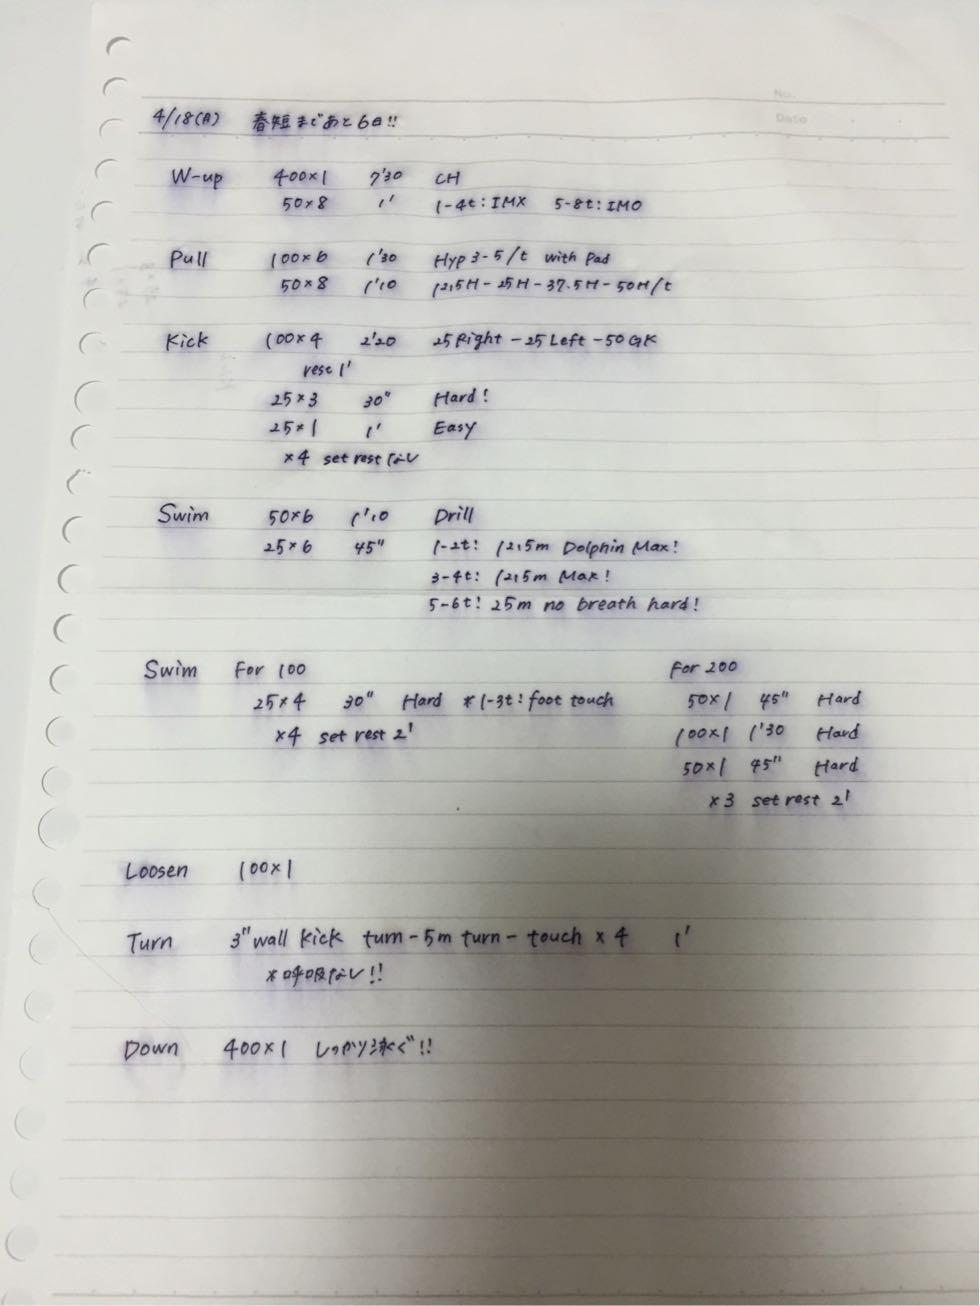 No.
Date
4/18(月) 春短まであと6日!!
W-up 400×1 7'30 CH
50×8 1' 1-4t:IMX 5-8t:IMO
Pull 100×6 1'30 Hyp 3-5/t with Pad
50×8 1'10 12.5H-25H-37.5H-50H/t
Kick 100×4 2'20 25Right-25Left-50GK
rest 1'
25×3 30" Hard!
25×1 1' Easy
×4 set rest なし
Swim 50×6 1'10 Drill
25×6 45" 1-2t: 12.5m Dolphin Max!
3-4t: 12.5m Max!
5-6t: 25m no breath hard!
Swim For 100
25×4 30" Hard *1-3t:foot touch
×4 set rest 2'
For 200
50×1 45" Hard
100×1 1'30 Hard
50×1 45" Hard
×3 set rest 2'
Loosen 100×1
Turn 3"wall kick turn-5m turn-touch×4 1'
*呼吸なし!!
Down 400×1 しっかり泳ぐ!!